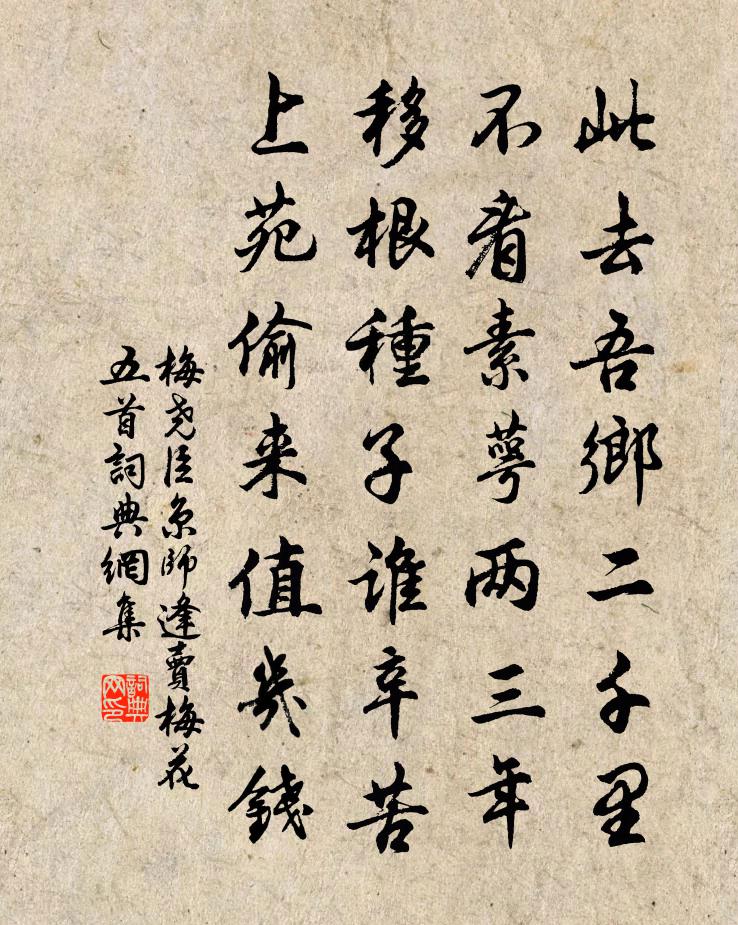 此去吾鄉二千里
不看素萼两三年
移根種子誰辛苦
上苑偷来值幾錢
梅尧臣京師逢賣梅花
五首詞典網集
詞典
网印